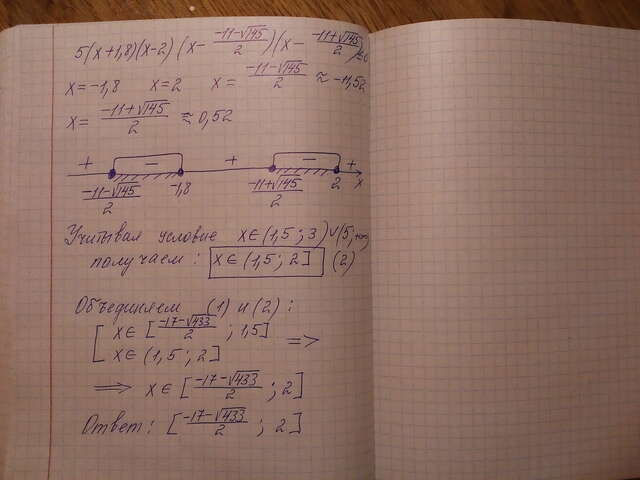 5(x+1,8)(x-2)(x- (-11-√145)/2)(x- (-11+√145)/2)≤0
x=-1,8 x=2 x= (-11-√145)/2 ≈ -11,52
x= (-11+√145)/2 ≈ 0,52
+ − + − +
(-11-√145)/2 -1,8 (-11+√145)/2 2 x
Учитывая условие x∈(1,5;3)∪(5;+∞)
получаем: x∈(1,5;2] (2)
Объединяем (1) и (2):
[ x∈[(-17-√433)/2 ; 1,5]
x∈(1,5;2] =>
=> x∈[(-17-√433)/2 ; 2]
Ответ: [(-17-√433)/2 ; 2]